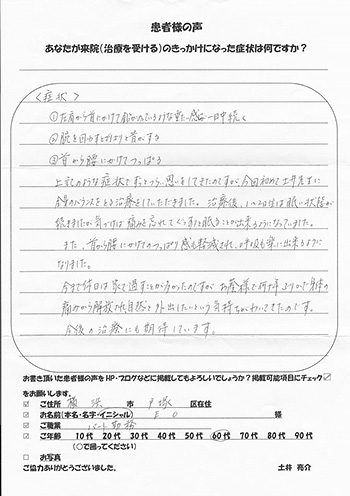 患者様の声
あなたが来院(治療を受ける)のきっかけになった症状は何ですか?
<症状>
①左肩から首にかけて
感じが一日中続く
②腕を回すと
音がする
③首から腰にかけてつっぱる
上記のような症状で
つらい思いをしてきたのですが、今回初めて土井先生に
全身のバランスをとる治療をしていただきました。治療後、1~2日は眠い状態が
続きましたが気づけば痛みを忘れてぐっすりと眠ることが出来るようになっていました。
また、首から腰にかけてのつっぱり感も軽減され、呼吸も楽に出来るように
なりました。
今まで休日は家で過すことが多かったのですが、お蔭様で何十年ぶりかで身体の
痛みから解放され自然と外出したいという気持ちがわいてきたのです。
今後の治療にも期待しています。
お書き頂いた患者様の声をHP・ブログなどに掲載してもよろしいでしょうか?掲載可能項目にチェック☑
をお願いします。
☑ ご住所 横浜 市 戸塚 区在住
☑ お名前(本名・名字・イニシャル) E O 様
☑ ご職業 パート勤務
☑ ご年齢 10代 20代 30代 40代 50代 60代 70代 80代 90代
(○で囲ってください)
□ お写真
ご協力ありがとうございました。 土井 亮介